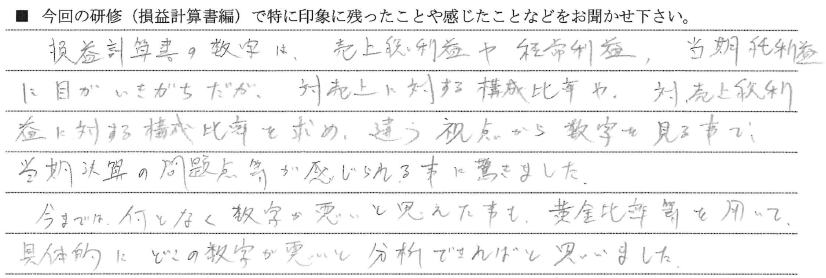 ■ 今回の研修（損益計算書編）で特に印象に残ったことや感じたことなどをお聞かせ下さい。
損益計算書の数字は、売上総利益や経常利益、当期純利益
に目がいきがちだが、対売上に対する構成比率や、対売上総利
益に対する構成比率を求め、違う視点から数字を見る事で、
当期決算の問題点等が感じられる事に驚きました。
今までは、何となく数字が悪いと思えた事も、黄金比率等を用いて、
具体的にどこの数字が悪いと分析できればと思いました。